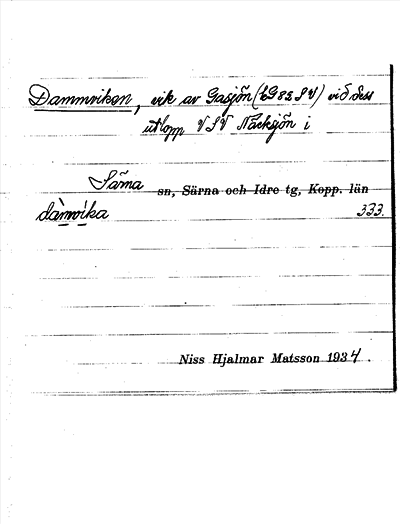 Dammviken, vik av Gasjön (EG 82 SV) vid dess
utlopp VSV Näcksjön i
Särna sn, Särna och Idre tg, Kopp. län
dàmvíka 333.
Niss Hjalmar Matsson 1934.